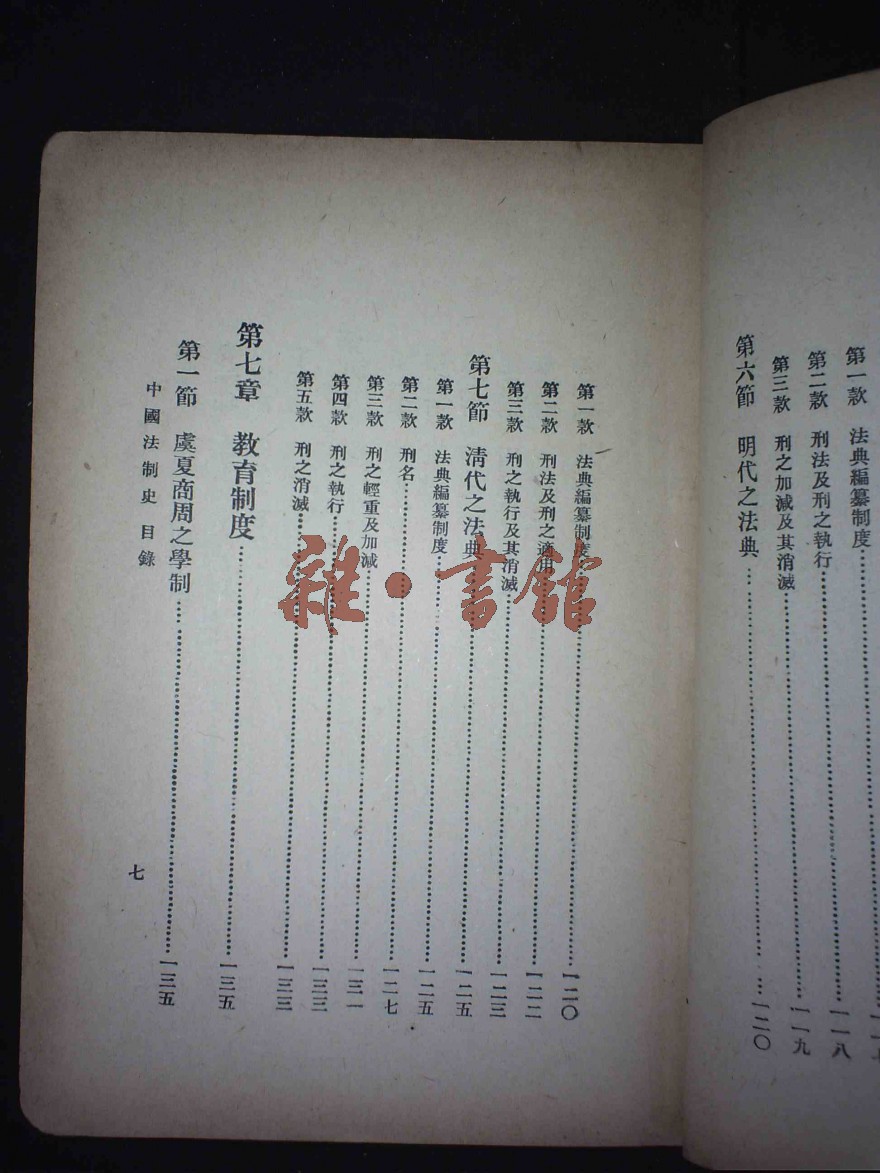 第一款 法典編纂制度
第二款 刑法及刑之執行 一一八
第三款 刑之加減及其消滅 一一九
第六節 明代之法典 一二〇
第一款 法典編纂制度 一二〇
第二款 刑法及刑之適用 一二二
第三款 刑之執行及其消滅 一二三
第七節 清代之法典 一二五
第一款 法典編纂制度 一二五
第二款 刑名 一二七
第三款 刑之輕重及加減 一三一
第四款 刑之執行 一三三
第五款 刑之消滅 一三三
第七章 教育制度 一三五
第一節 虞夏商周之學制 一三五
中國法制史 目錄 七
雜·書館